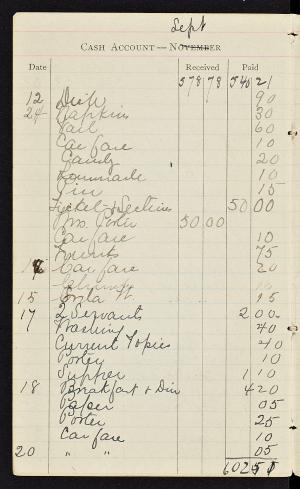 Sept
CASH ACCOUNT — NOVEMBER
Date Received Paid
578 78 540 21
12 90
24 Napkins 30
60
Car fare 10
Candy 20
Lemonade 10
15
Ticket + Section 50 00
Porter 50 00
Car fare 10
75
Car fare 20
10
15 15
17 2 Servants 2 00
Washing 40
Current Topics 40
Porter 10
Supper 1 10
18 Breakfast + Din 4 20
Paper 05
Porter 25
Car fare 10
20 " " 05
602 51